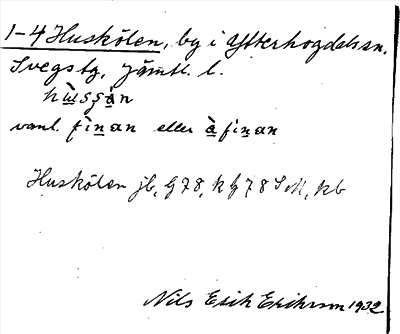 1-4 Huskölen, by i Ytterhogdals sn,
Svegs tg, Jämtl. l.
vanl. finan eller å finan
Huskölen jb, G 78, k G 78 SM, kb
Nils Erik Eriksson 1932